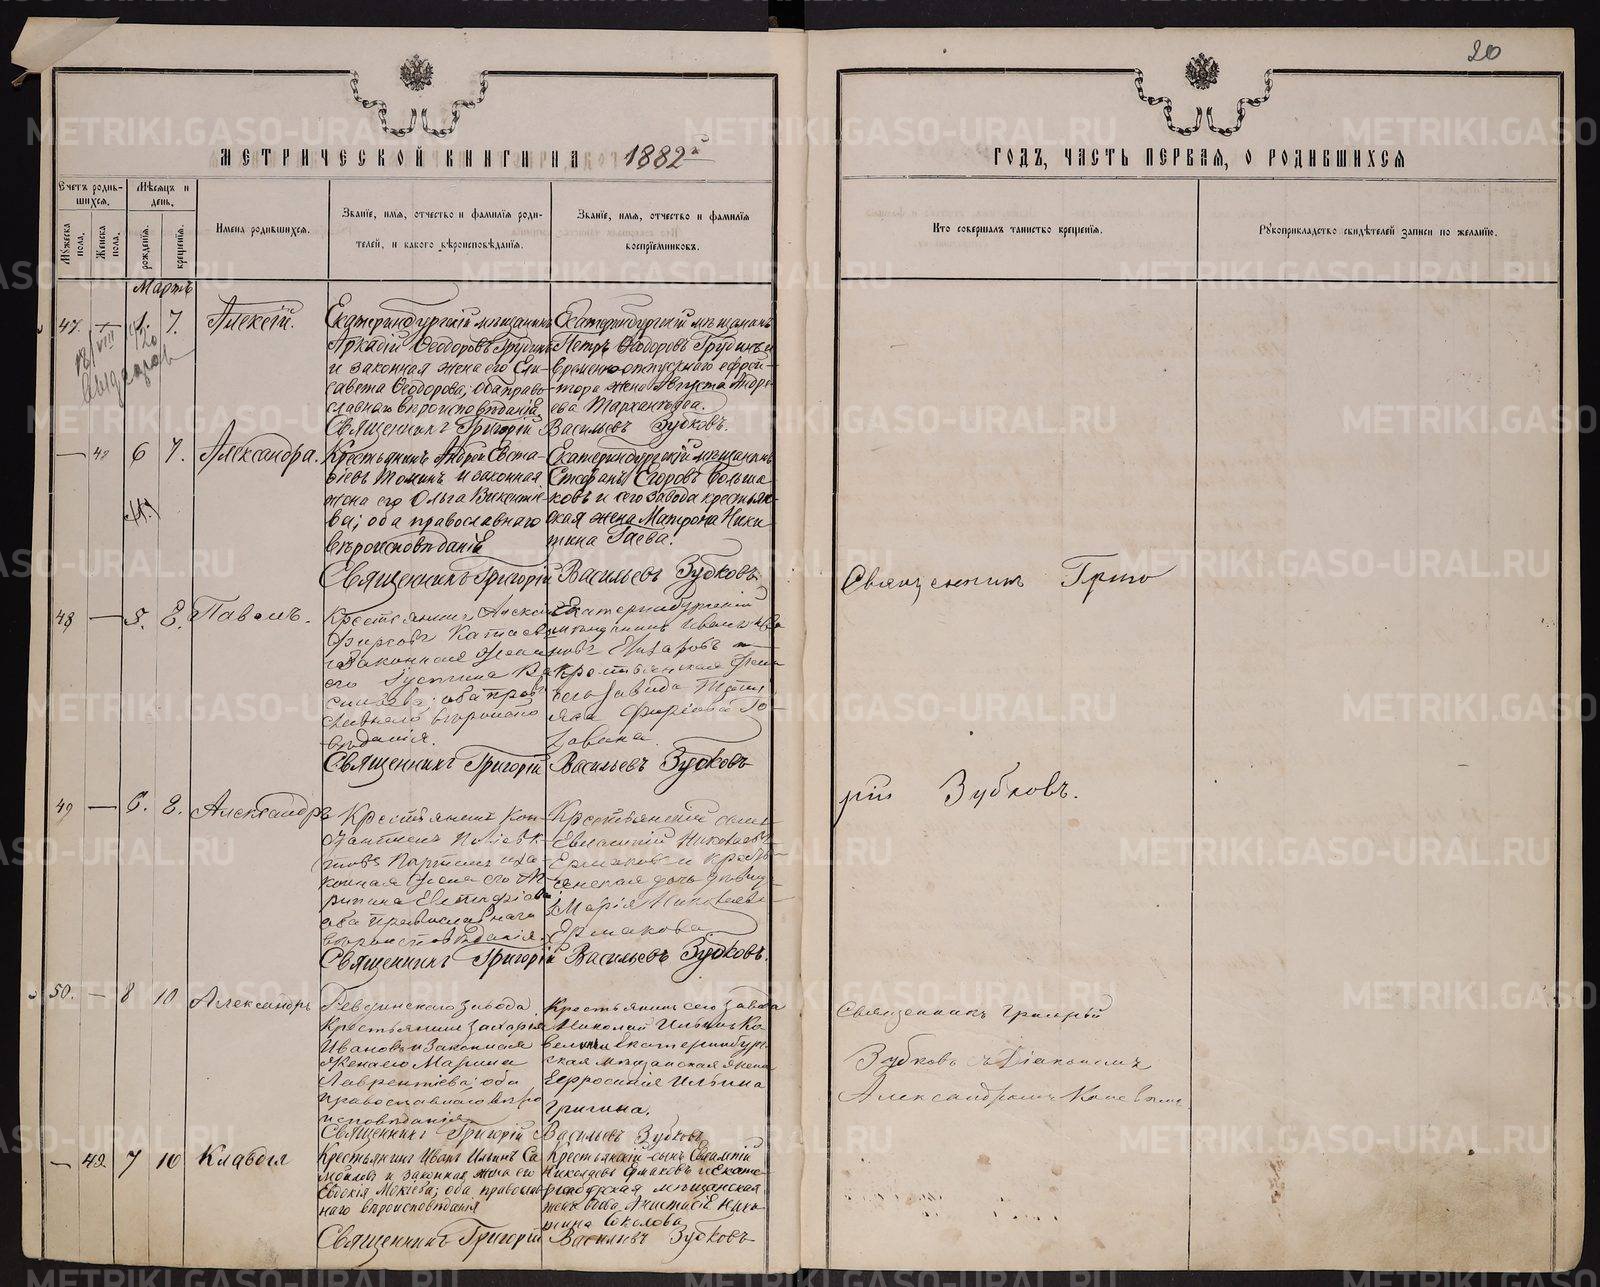 20
МЕТРИЧЕСКОЙ КНИГИ НА 1882й
ГОДЪ, ЧАСТЬ ПЕРВАЯ, О РОДИВШИХСЯ
Счетъ родив-
шихся.
Мѣсяцъ и
день.
Мужеска пола.
Женска пола.
рожденія.
крещенія.
Имена родившихся.
Званіе, имя, отчество и фамилія роди-
телей, и какого вѣроисповѣданія.
Званіе, имя, отчество и фамилія
воспріемниковъ.
Кто совершалъ таинство крещенія.
Рукоприкладство свидѣтелей записи по желанію.
Мартъ
47. — 1. 7. Алексій.
Екатеринбургскій мѣщанинъ
Аркадій Ѳеодоровъ
и законная жена его Ели-
савета Ѳеодорова; оба право-
славнаго вѣроисповѣданія.
Екатеринбургскій мѣщанинъ
Петръ Ѳеодоровъ и
временно-отпускнаго ефрей-
тора жена Августа Андре-
ева
Священникъ Григорій Васильевъ Зубковъ.
— 6 7. Александра.
Крестьянинъ Андрей Евста-
ѳіевъ Томинъ и законная
жена его Ольга Викентіе-
ва; оба православнаго
вѣроисповѣданія
Екатеринбургскій мѣщанинъ
Стефанъ Егоровъ Больша-
ковъ и сего завода крестьян-
ская жена Матрона Ники-
тина Гаева.
Священникъ Григорій Васильевъ Зубковъ
48 — 5. 8. Павелъ.
Крестьянинъ
Фирсовъ
законная жена
его Іустина Ва-
силева; оба прав-
славнаго вѣроиспо-
вѣданія.
Екатеринбургскій
мѣщанинъ Иванъ
Елизаровъ и
крестьянская жена
сего завода
Фирсова
Священникъ Григорій Васильевъ Зубковъ
Священникъ Григо
рій Зубковъ.
49 — 6. 8. Александръ
Крестьянинъ Кон-
стантинъ
и за-
конная жена его
рипина Евстафіева
оба православнаго
вѣроисповѣданія.
Крестьянскій сынъ
Евлампій Николаевъ
Ермаковъ и кресть-
янская дочь дѣвица
Марія Николаева
Ермакова
Священникъ Григорій Васильевъ Зубковъ.
50. — 8 10 Александръ
Ревдинскаго завода
крестьянинъ Захарья
Ивановъ и законная
жена его Марина
Лаврентіева; оба
православнаго вѣро
исповѣданія
Крестьянинъ сего завода
Николай Ильинъ Ко-
велинъ и Екатеринбург-
ская мѣщанская жена
Евфросинія Ильина
Священникъ Григорій Васильевъ Зубковъ
Священникъ Григорій
Зубковъ съ Діакономъ
Александромъ
— 42 7 10 Клавдія
Крестьянинъ Иванъ Ильинъ Са-
мойловъ и законная жена его
Евдокія Мокіева; оба православ-
наго вѣроисповѣданія
Крестьянскій сынъ Евлампій
Николаевъ Ермаковъ и Екате-
ринбургская мѣщанская
Ники-
тина Соколова
Священникъ Григорій Васильевъ Зубковъ
METRIKI.GASO-URAL.RU